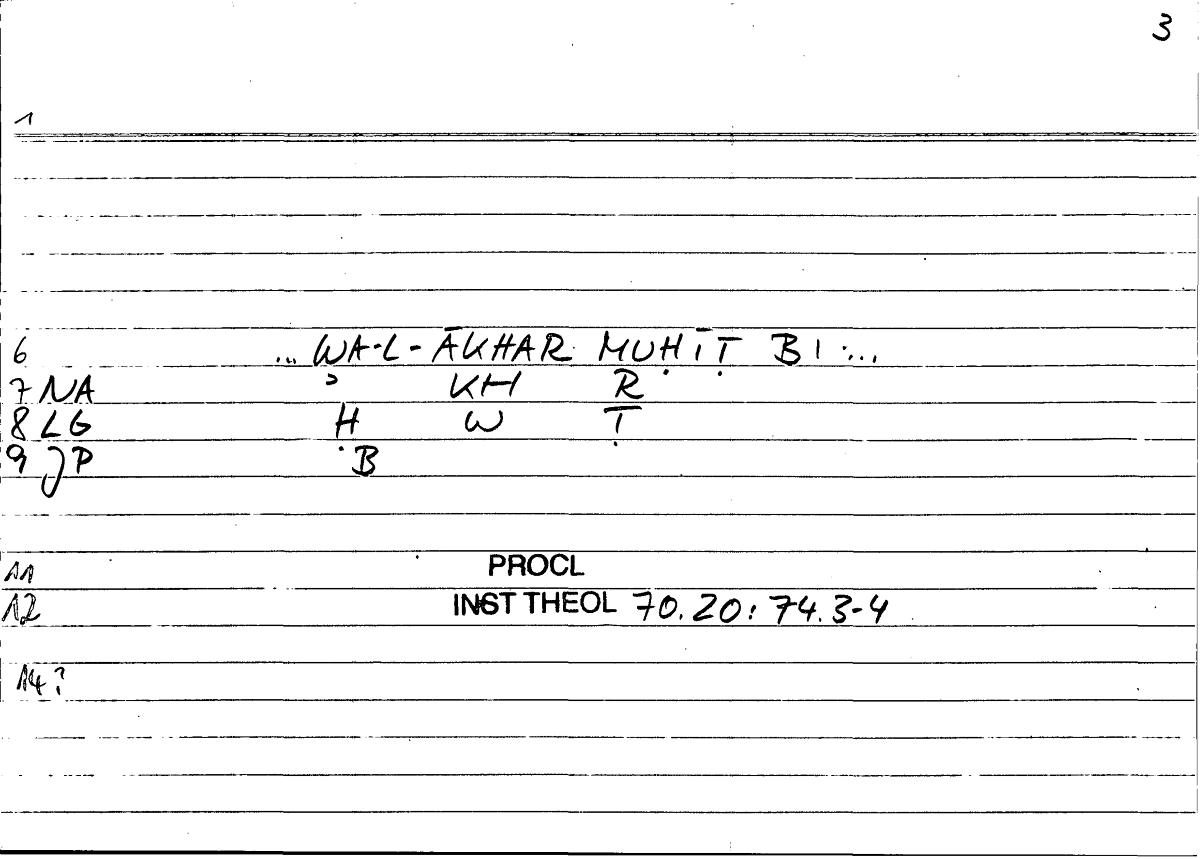 3
1
6 ... WA-L-ĀKHAR MUḤĪṬ BI ...
7 NA ʾ KH R
8 LG Ḥ W Ṭ
9 JP B
11 PROCL
12 INST THEOL 70.20:74.3-4
14?